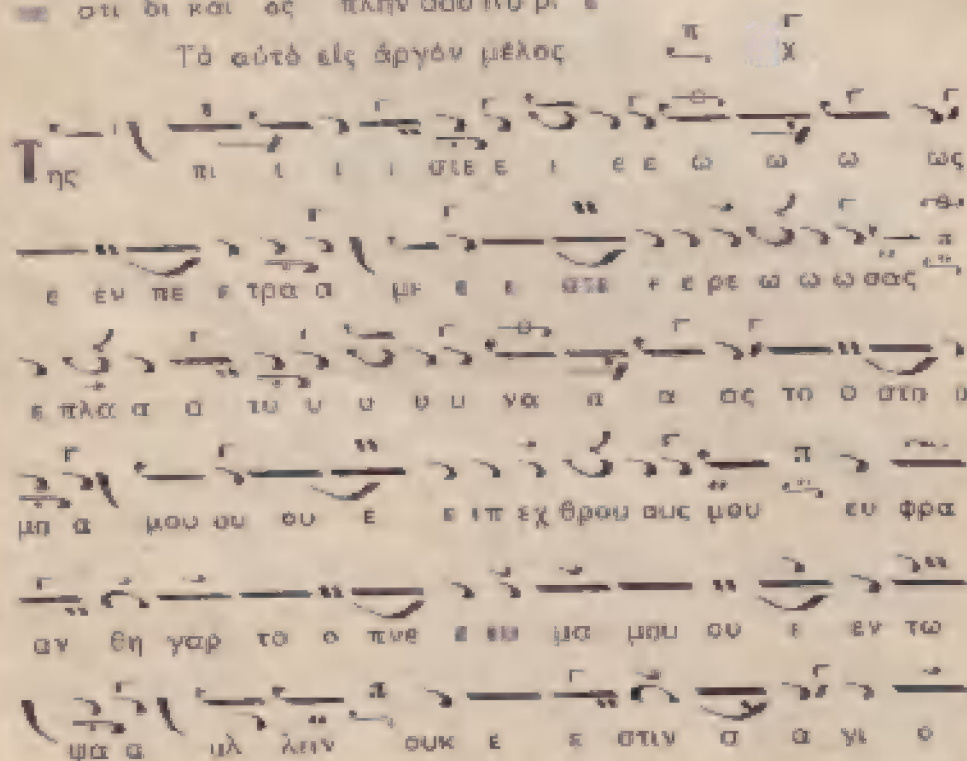 οτι δι και ος πλην σου Κυ ρι ε
Τὸ αὐτὸ εἰς ἀργὸν μέλος π Γ χ
Της πι ι ι ι στε ε ι ε ε ω ω ω ως
ε εν πε ε τρα α με ε ε στε ε ε ρε ω ω ω σας π
ε πλα α α τυ υ υ υ υ να α α ας το ο στο ο
μα α μου ου ου ε ε π εχ θρου ους μου π ευ φρα
αν θη γαρ το ο πνε ε ευ μα μου ου ε εν τω
ψα α λειν π ουκ ε ε στιν α α γι ο